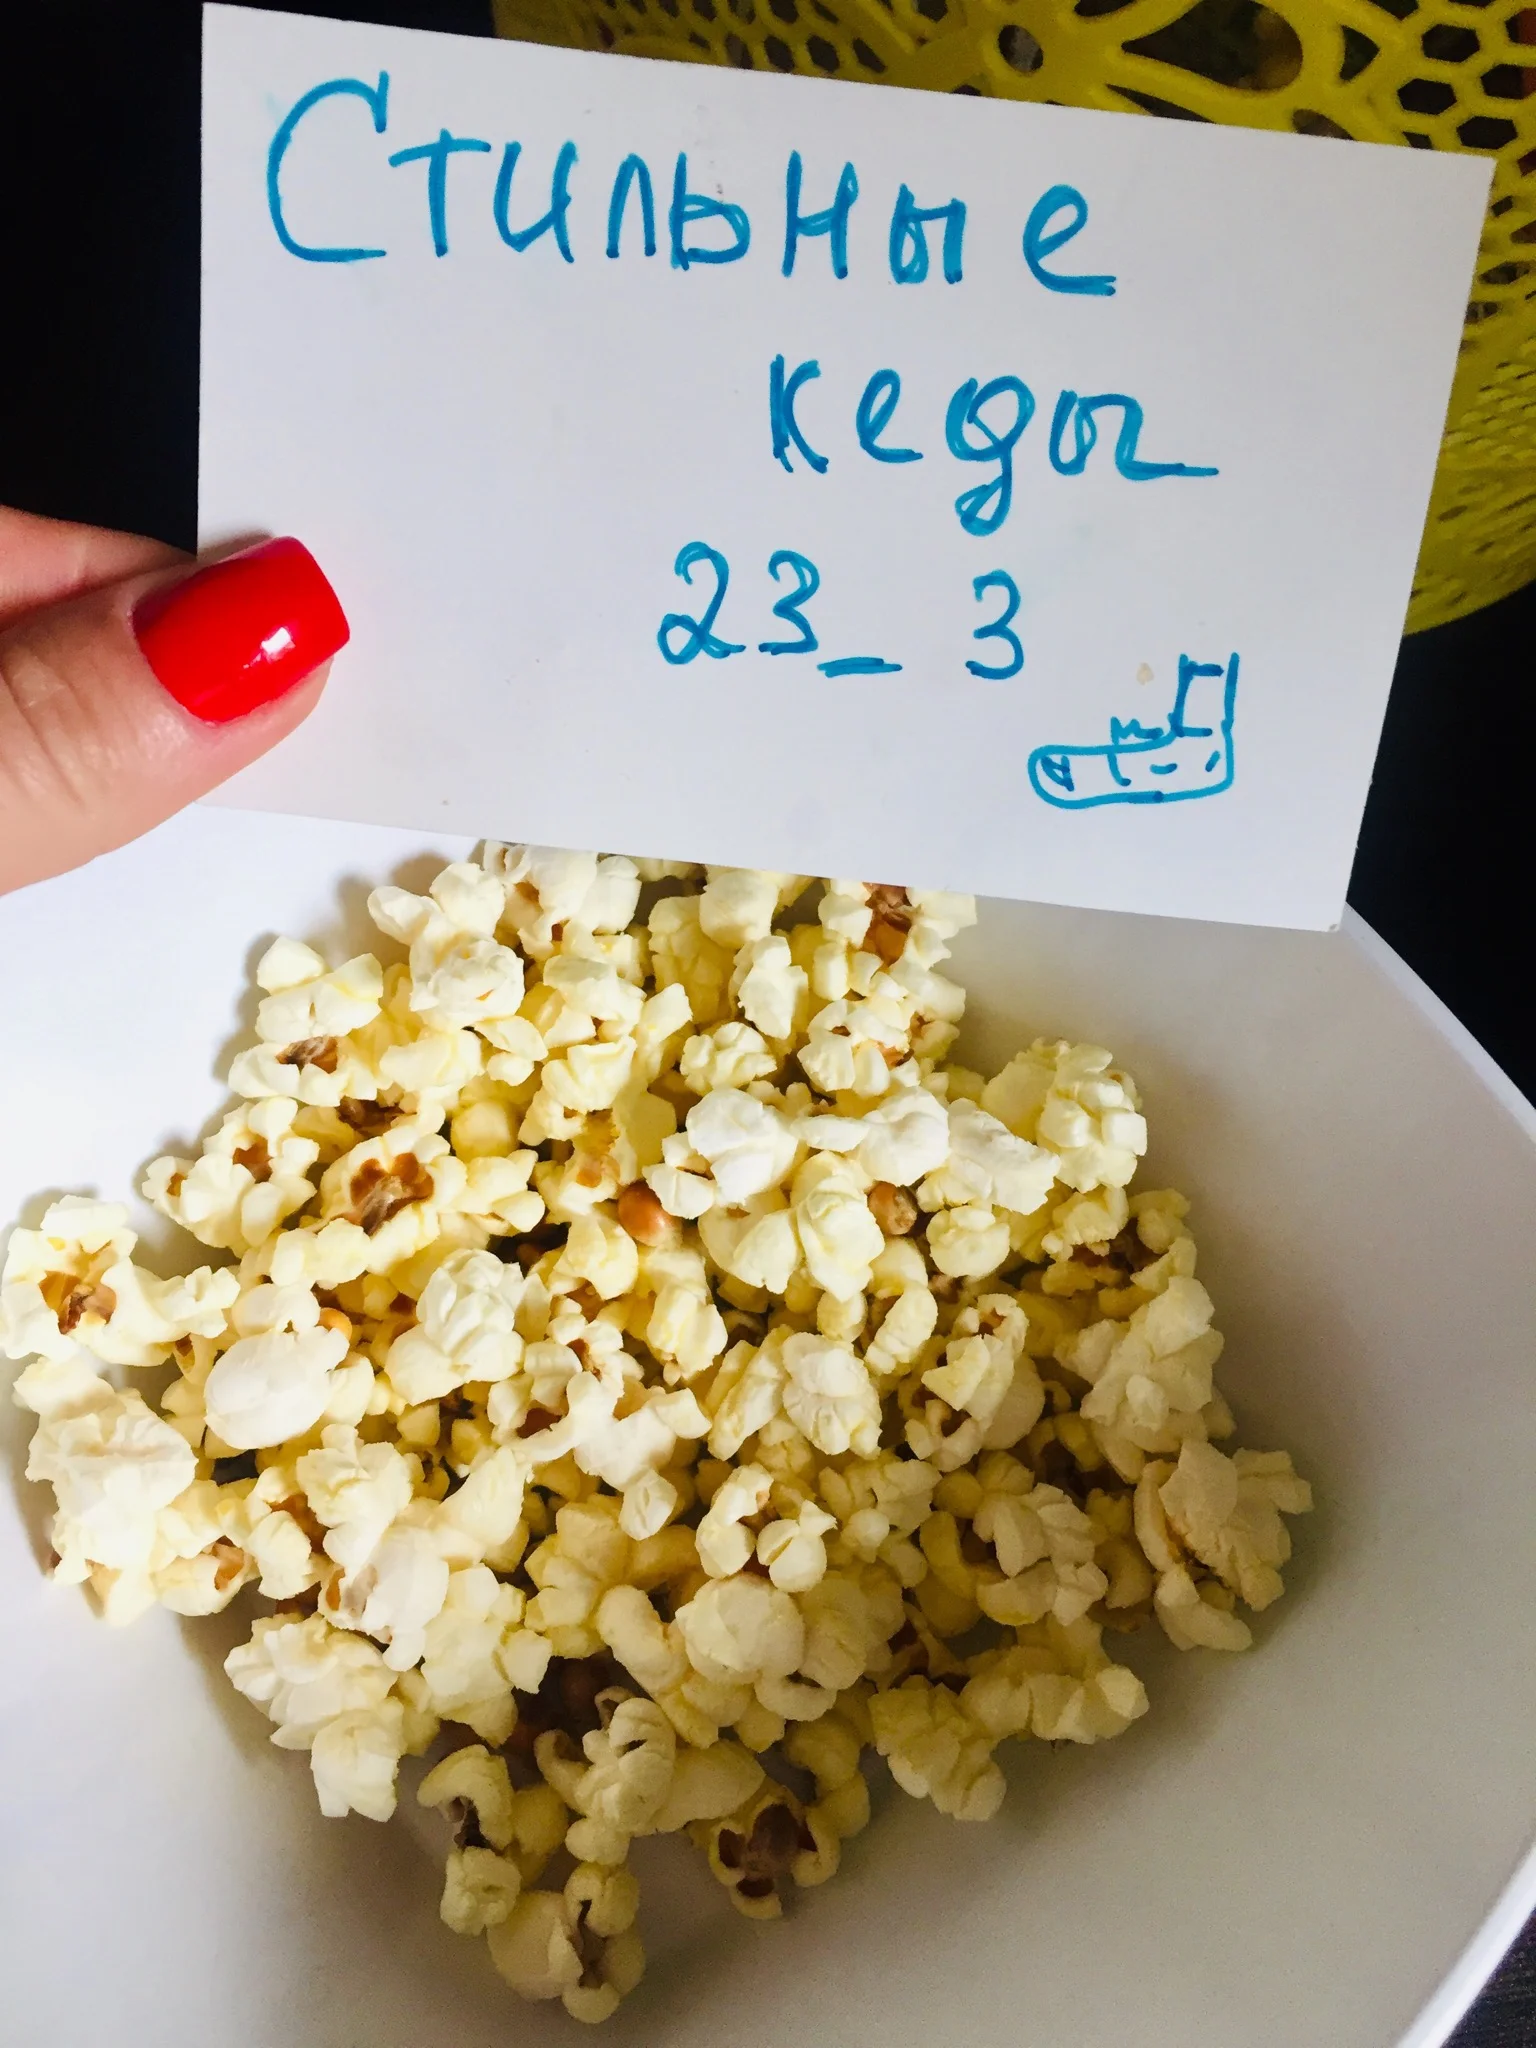 Стильные
кеды
23_3